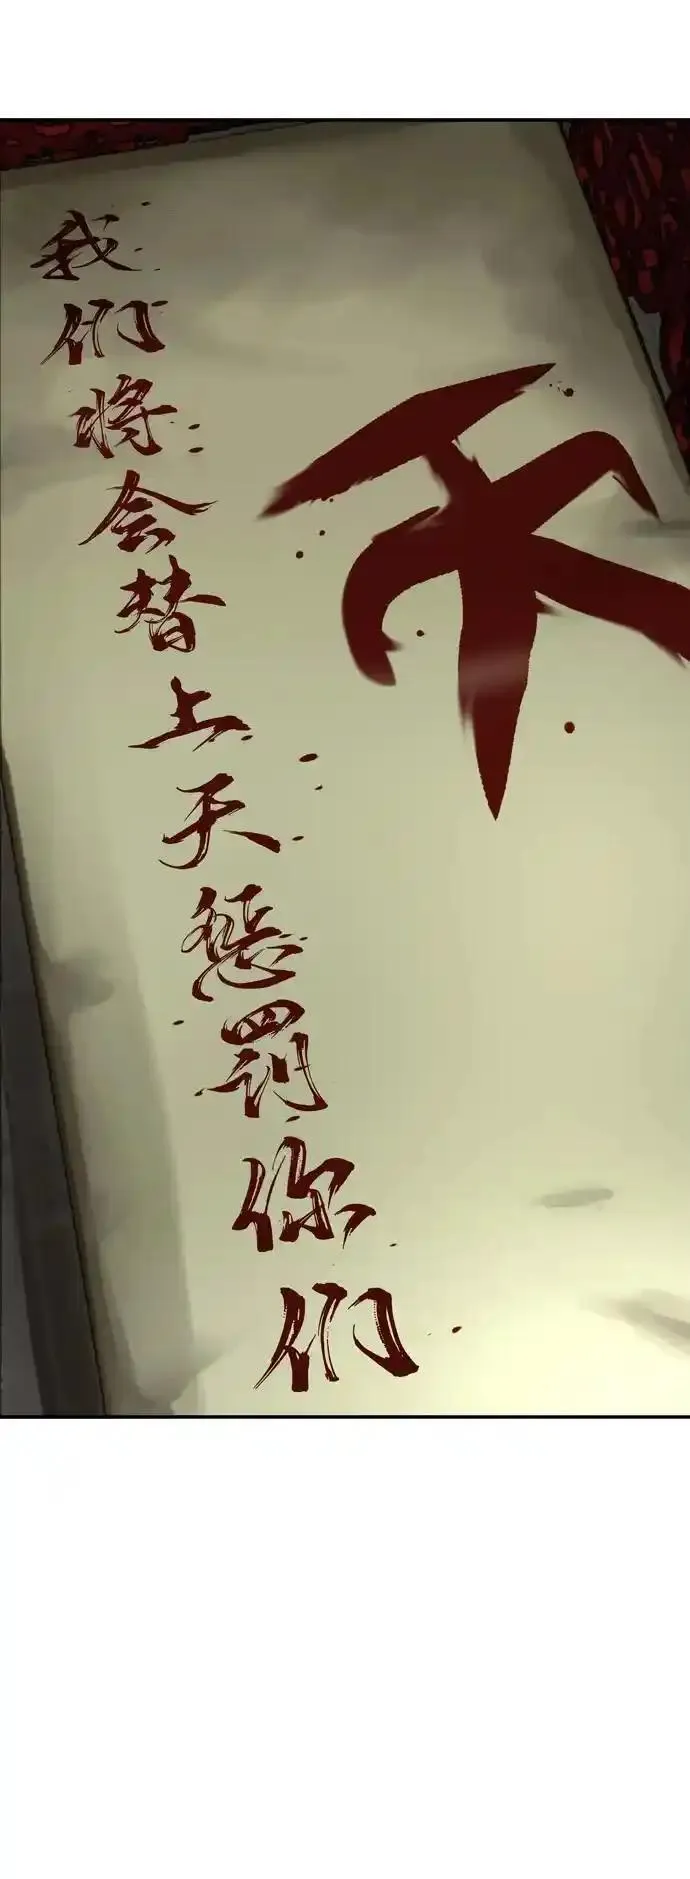 我们将会替上天惩罚你们